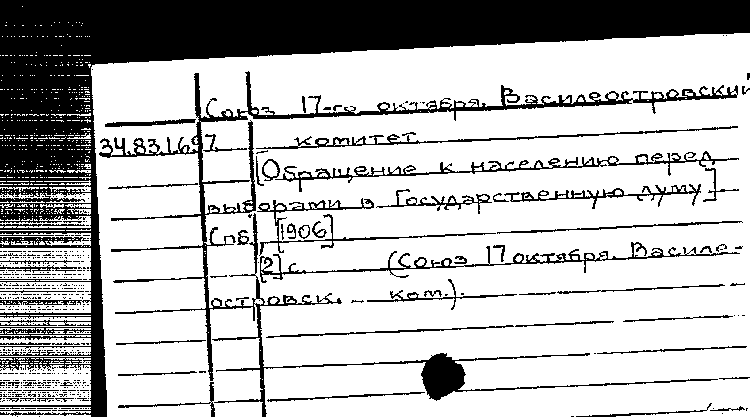 Союз 17-го октября. Василеостровский
34.83.1.697. комитет.
[Обращение к населению перед
выборами в Государственную думу]
Спб., [1906]
[2] с. (Союз 17 октября. Василе-
островск. ком.).